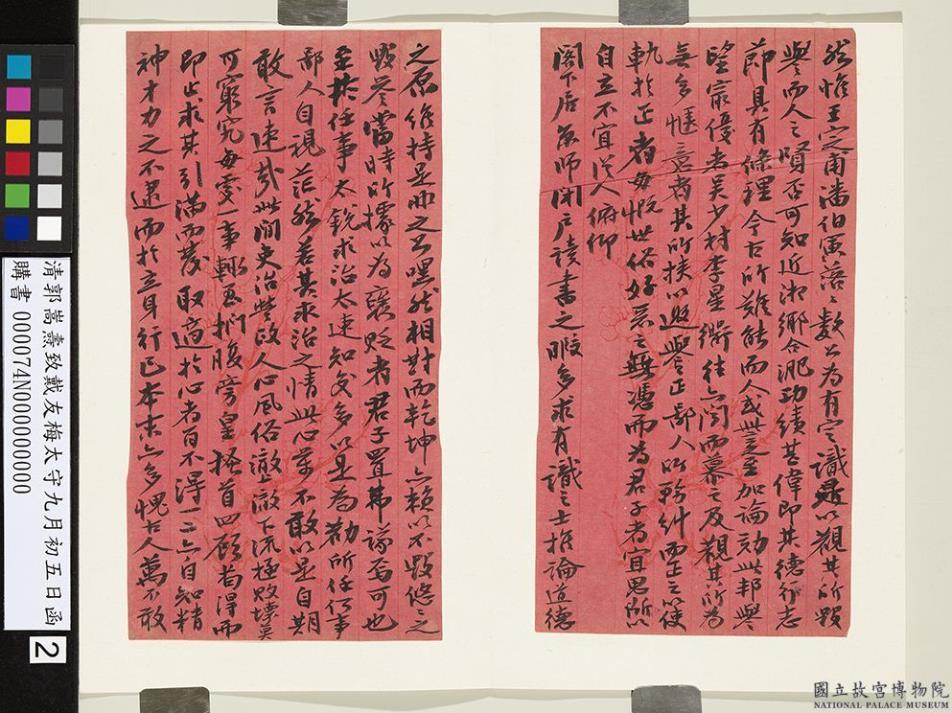 然惟王定甫潘伯寅落落數公為有定識足以觀其所毀
譽而人之賢否可知近湘鄉合淝功績甚偉即其德行志
節具有條理今古所難能而人或無異加論劾此邦與
望最優者吳少村李星衢往亦聞而慕之及觀其所為
無多愜意者其所挾以邀譽正鄙人所務糾而正之使
軌於正者每慨世俗好惡之無憑而為君子者宜思所以
自立不宜從人俯仰
閣下居京師閉戶讀書之暇多求有識之士推論道德
之原維持是非之公嘿然相對而乾坤亦賴以不毀悠悠之
毀譽當時所據以為褒貶者君子置弗議焉可也
至於任事太銳求治太速知交多以是為勸所任何事
鄙人自視茫然若其求治之情此心萬不敢以是自期
敢言速哉此間吏治無政人心風俗澈上澈下流極敗壞莫
可窮究每處一事輒至捫腹旁皇搔首四顧苟得而
即止求其引滿而發取適於心者百不得一二亦自知精
神才力之不逮而於立身行己本末亦多愧古人萬不敢
清郭嵩燾致戴友梅太守九月初五日函
購書 000074N000000000
2
國立故宮博物院
NATIONAL PALACE MUSEUM